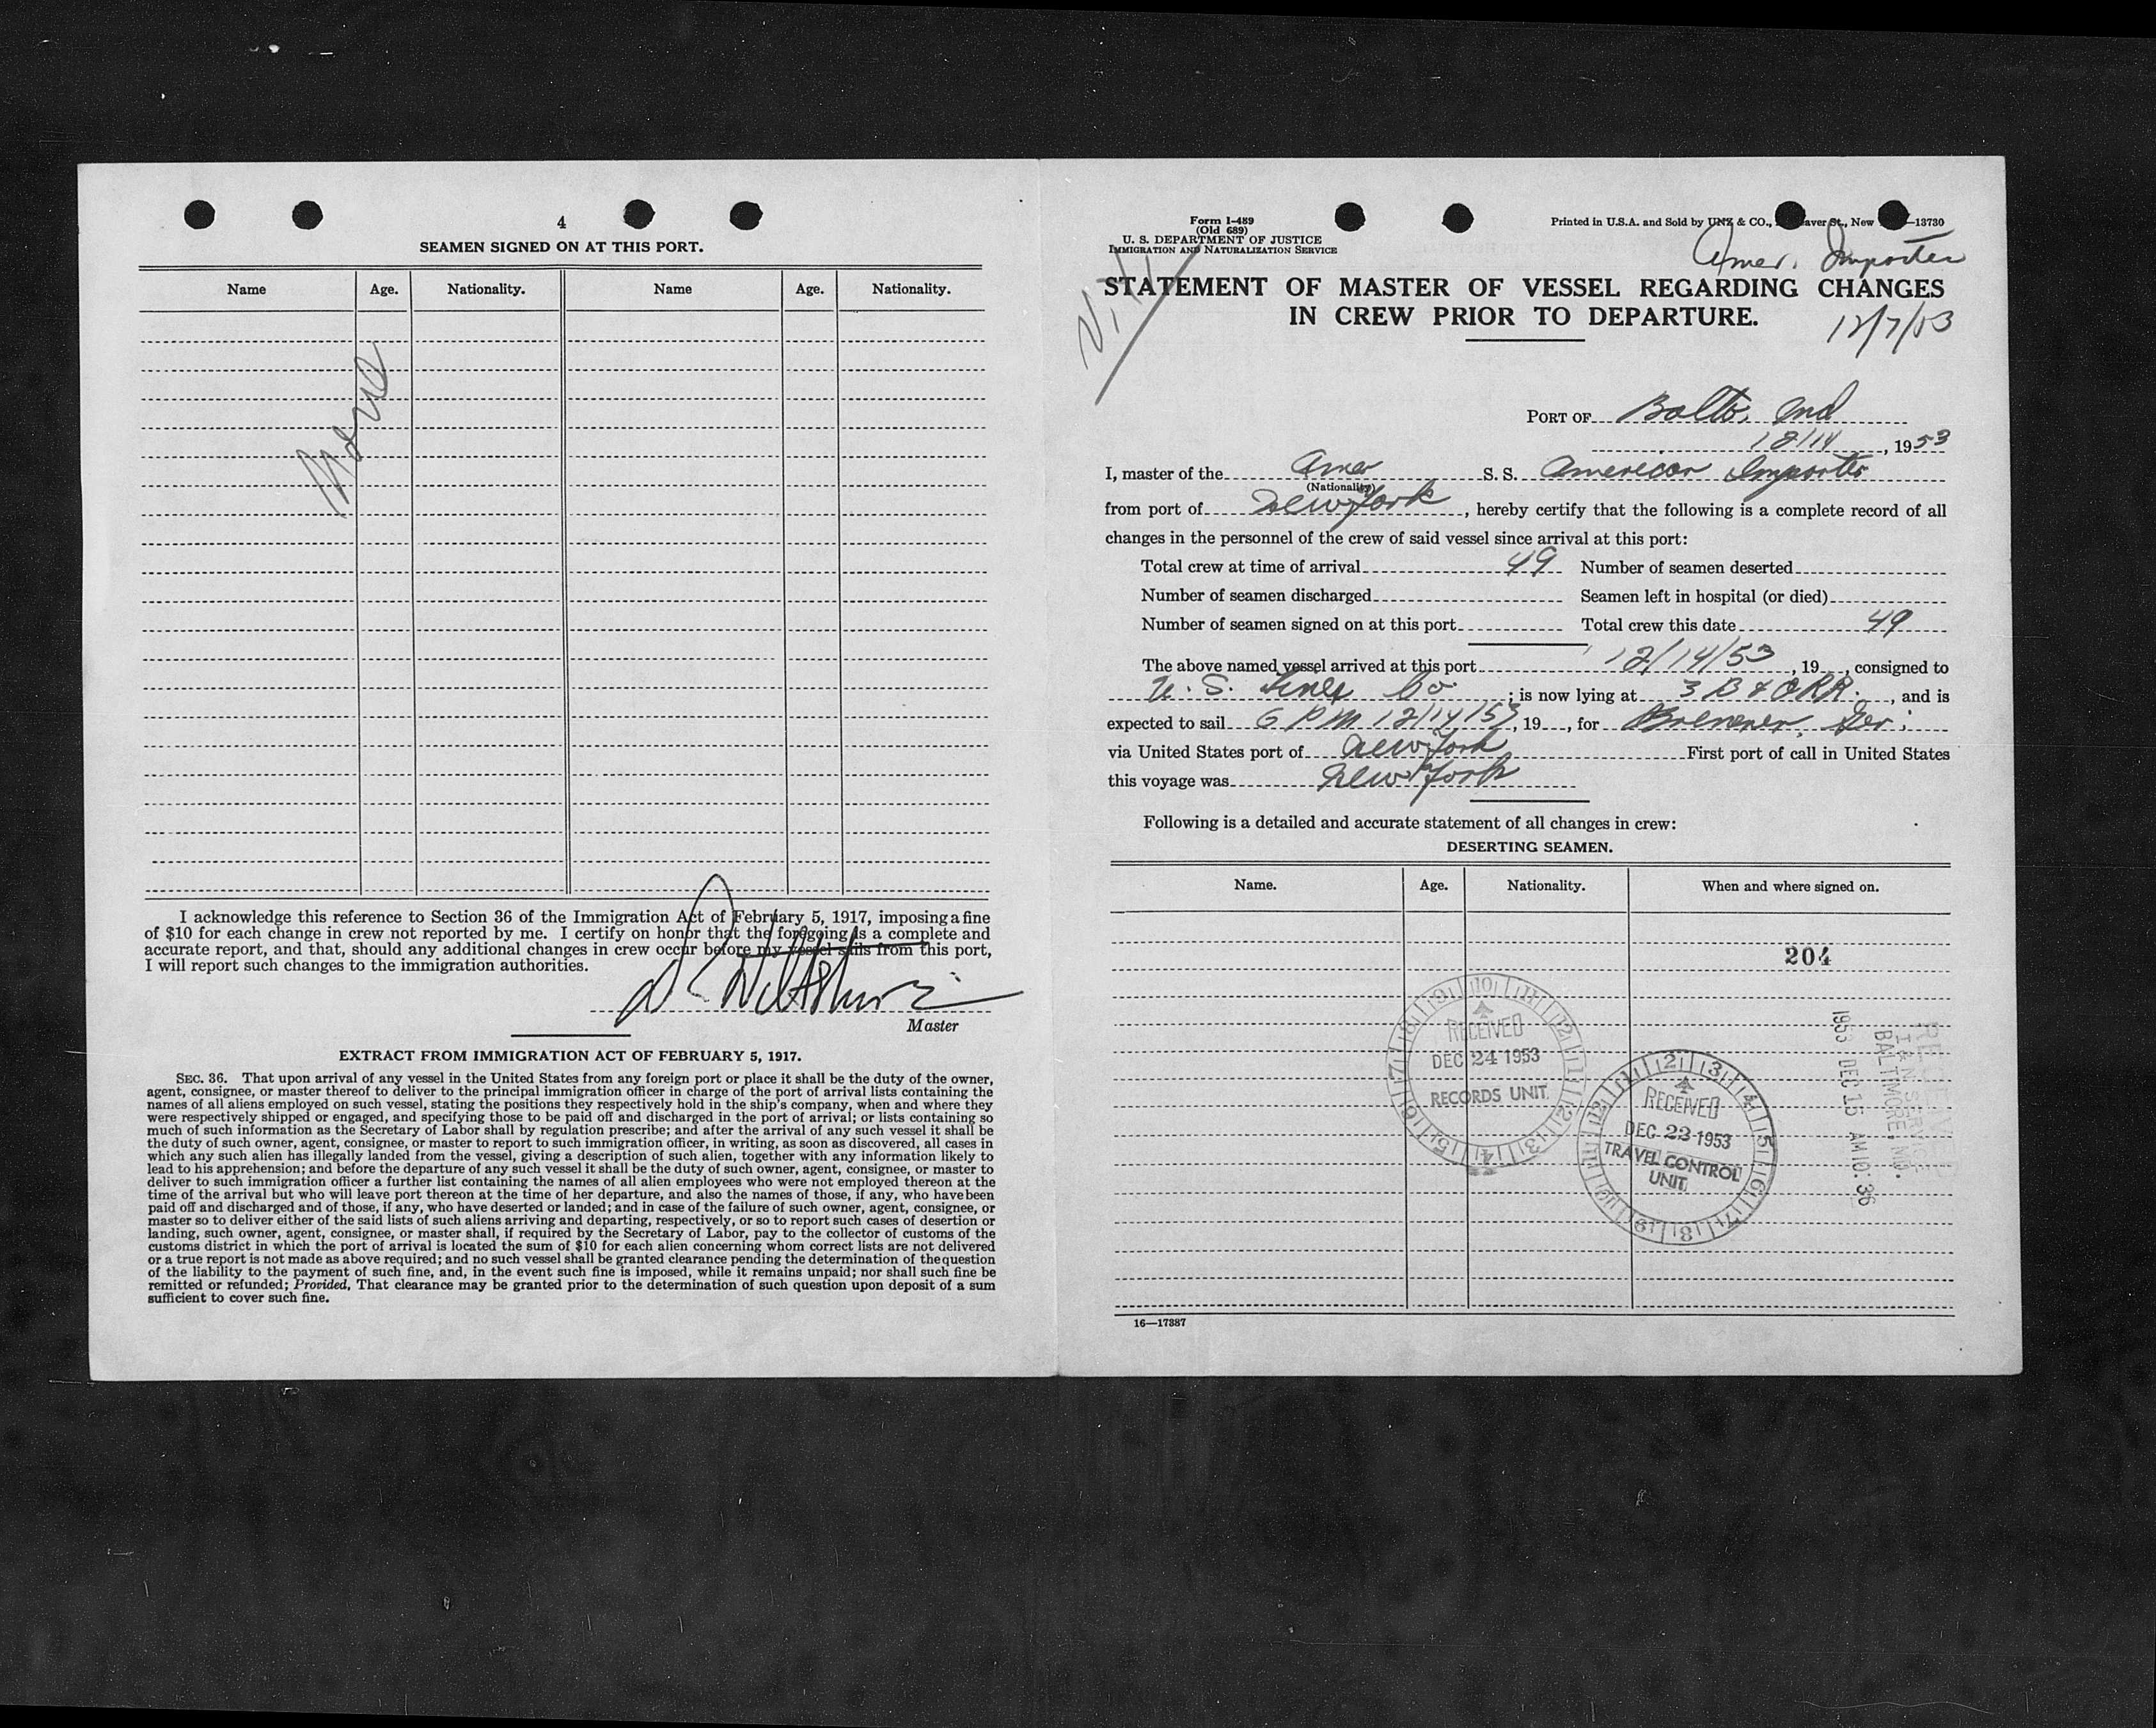 4
SEAMEN SIGNED ON AT THIS PORT.
Name Age. Nationality. Name Age. Nationality.
None
I acknowledge this reference to Section 36 of the Immigration Act of February 5, 1917, imposing a fine
of $10 for each change in crew not reported by me. I certify on honor that the foregoing is a complete and
accurate report, and that, should any additional changes in crew occur before my vessel sails from this port,
I will report such changes to the immigration authorities.
Master
EXTRACT FROM IMMIGRATION ACT OF FEBRUARY 5, 1917.
SEC. 36. That upon arrival of any vessel in the United States from any foreign port or place it shall be the duty of the owner,
agent, consignee, or master thereof to deliver to the principal immigration officer in charge of the port of arrival lists containing the
names of all aliens employed on such vessel, stating the positions they respectively hold in the ship's company, when and where they
were respectively shipped or engaged, and specifying those to be paid off and discharged in the port of arrival; or lists containing so
much of such information as the Secretary of Labor shall by regulation prescribe; and after the arrival of any such vessel it shall be
the duty of such owner, agent, consignee, or master to report to such immigration officer, in writing, as soon as discovered, all cases in
which any such alien has illegally landed from the vessel, giving a description of such alien, together with any information likely to
lead to his apprehension; and before the departure of any such vessel it shall be the duty of such owner, agent, consignee, or master to
deliver to such immigration officer a further list containing the names of all alien employees who were not employed thereon at the
time of the arrival but who will leave port thereon at the time of her departure, and also the names of those, if any, who have been
paid off and discharged and of those, if any, who have deserted or landed; and in case of the failure of such owner, agent, consignee, or
master so to deliver either of the said lists of such aliens arriving and departing, respectively, or so to report such cases of desertion or
landing, such owner, agent, consignee, or master shall, if required by the Secretary of Labor, pay to the collector of customs of the
customs district in which the port of arrival is located the sum of $10 for each alien concerning whom correct lists are not delivered
or a true report is not made as above required; and no such vessel shall be granted clearance pending the determination of the question
of the liability to the payment of such fine, and, in the event such fine is imposed, while it remains unpaid; nor shall such fine be
remitted or refunded; Provided, That clearance may be granted prior to the determination of such question upon deposit of a sum
sufficient to cover such fine.
Form I-489
(Old 689)
U. S. DEPARTMENT OF JUSTICE
IMMIGRATION AND NATURALIZATION SERVICE
Printed in U.S.A. and Sold by UNZ & CO., aver St., New —13730
Amer. Importer
STATEMENT OF MASTER OF VESSEL REGARDING CHANGES
IN CREW PRIOR TO DEPARTURE.
12/7/53
PORT OF Balto, Md
12/14, 1953
I, master of the Amer S. S. American Importer
(Nationality)
from port of New York, hereby certify that the following is a complete record of all
changes in the personnel of the crew of said vessel since arrival at this port:
Total crew at time of arrival 49 Number of seamen deserted
Number of seamen discharged Seamen left in hospital (or died)
Number of seamen signed on at this port Total crew this date 49
The above named vessel arrived at this port 12/14/53, 19, consigned to
U. S. Lines Co; is now lying at 3 B & O RR., and is
expected to sail 6 PM 12/14/53, 19, for Bremen, Ger.
via United States port of New York First port of call in United States
this voyage was New York
Following is a detailed and accurate statement of all changes in crew:
DESERTING SEAMEN.
Name. Age. Nationality. When and where signed on.
204
RECEIVED
DEC 24 1953
RECORDS UNIT.
RECEIVED
DEC 23 1953
TRAVEL CONTROL
UNIT.
RECEIVED
I & N SERVICE
BALTIMORE, MD.
1953 DEC 15 AM 10: 36
16—17387